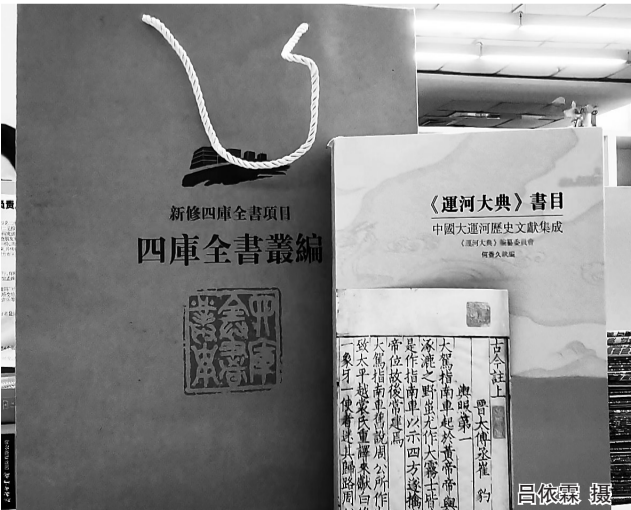 新修四庫全書項目
四庫全書叢編
《運河大典》書目
中國大運河歷史文獻集成
《運河大典》編纂委員會
何養久統編
古今註上
晉大傅丞崔豹
輿服第一
大駕指南車起於黃帝帝與
涿漉之野蚩尤作大霧士皆
是作指南車以示四方遂擒
帝位故後常建焉
大駕指南車舊說周公所作
致太平越裳氏重譯來獻白
一象牙一使者迷其歸路周
吕依霖 摄